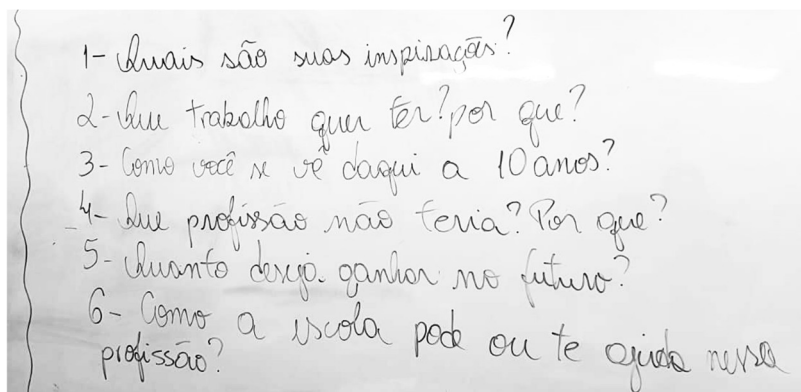 1- Quais são suas inspirações?
2- Que trabalho quer ter? por que?
3- Como você se vê daqui a 10 anos?
4- Que profissão não teria? Por que?
5- Quanto deseja ganhar no futuro?
6- Como a escola pode ou te ajuda nessa
profissão?